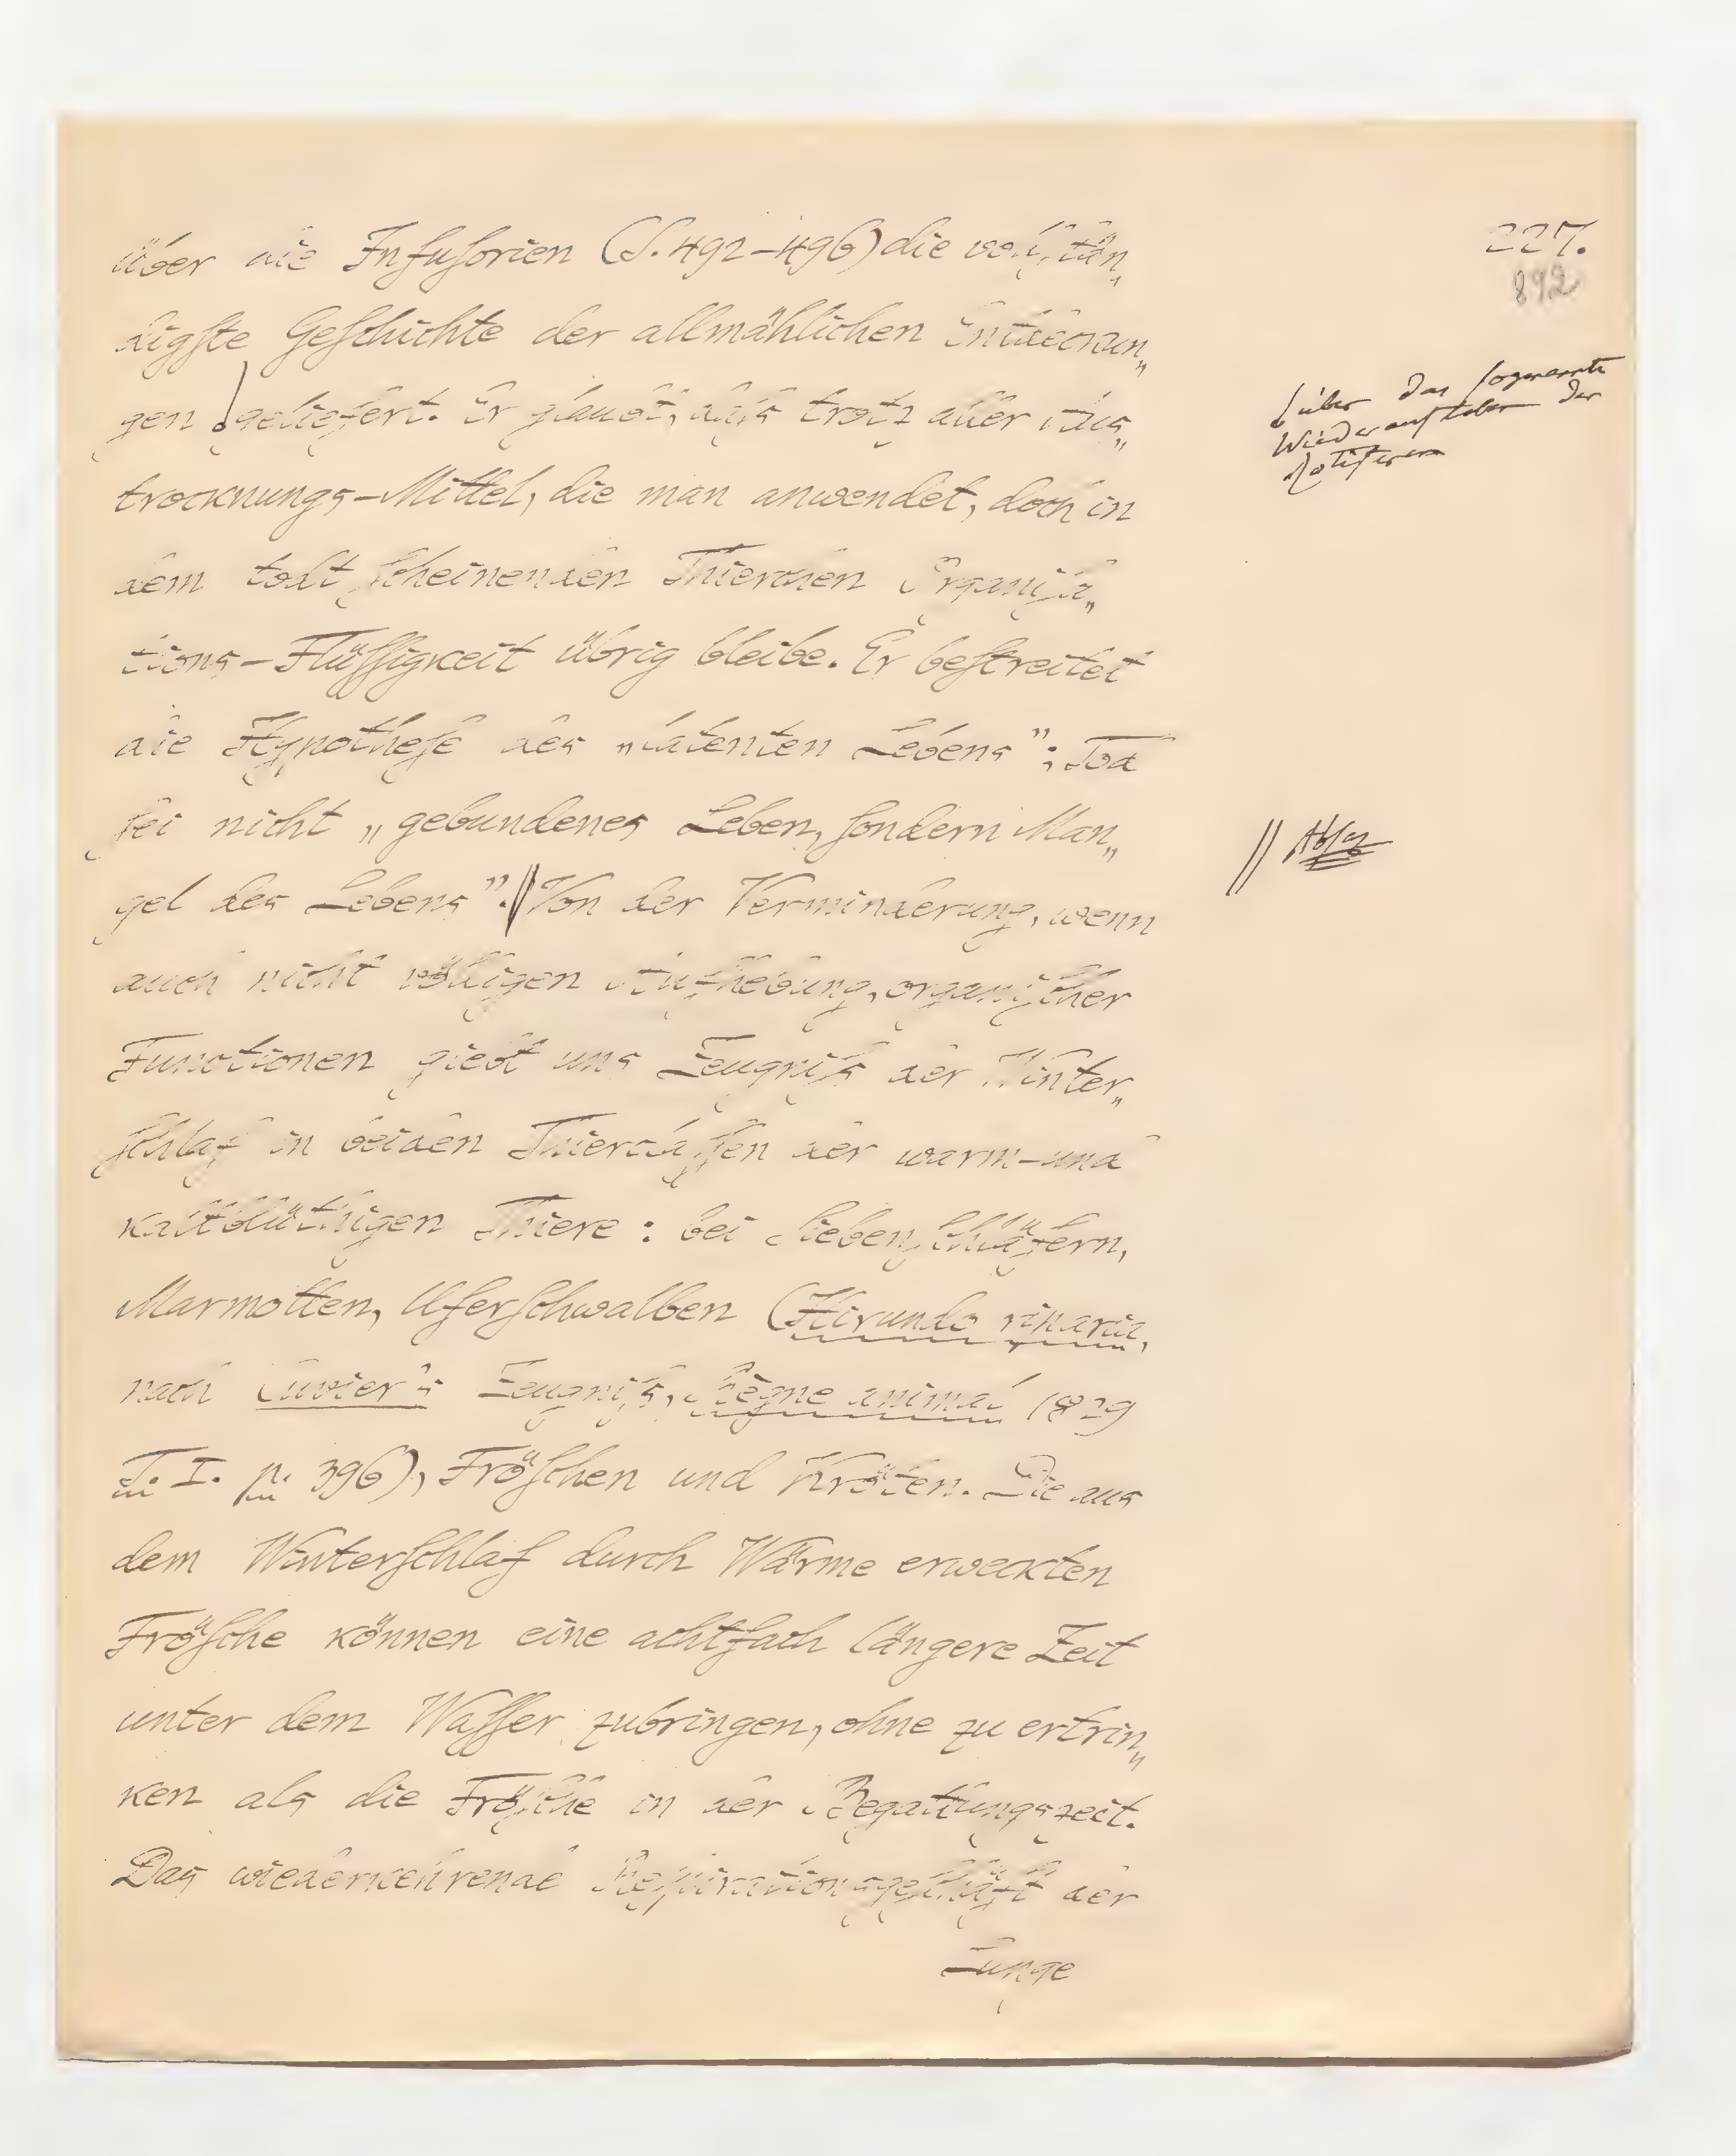 227.
892
über die Infuſorien (S. 492–496) die vollſtän„
digſte Geſchichte der allmählichen Entdeckun„
gen geliefert. Er glaubt, daſs trotz aller Aus„
trocknungs-Mittel, die man anwendet, doch in
dem todt ſcheinenden Thierchen Organiſa„
tions-Flüſſigkeit übrig bleibe. Er beſtreitet
die Hypotheſe des „latenten Lebens”; Tod
ſei nicht „gebundenes Leben, ſondern Man„
gel des Lebens”.// Von der Verminderung, wenn
auch nicht völligen Aufhebung, organiſcher
Functionen giebt uns Zeugniſs der Winter„
ſchlaf in beiden Thierclaſſen der warm-und
kaltblüthigen Thiere: bei Siebenſchläfern,
Marmotten, Uferſchwalben (Hirundo riparia,
nach Cuvier's Zeugniſs, Règne animal 1829
T. I. p. 396), Fröſchen und Kröten. Die aus
dem Winterſchlaf durch Wärme erweckten
Fröſche können eine achtfach längere Zeit
unter dem Waſſer zubringen, ohne zu ertrin„
ken als die Fröſche in der Begattungszeit.
Das wiederkehrende Reſpirationsgeſchäft der
Lunge
über das ſogenannte
Wiederaufleben der
Rotiferen
// Abſaz